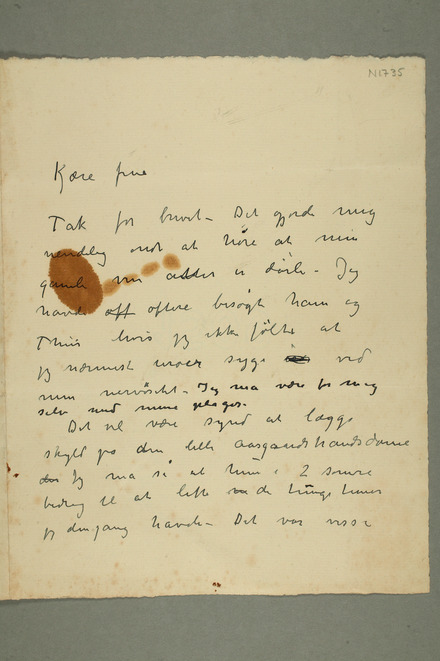 N1735
Kære frue
Tak for brevet – Det gjorde mig
uendelig ondt at høre at min
gamle nu er dårlig – Jeg
havde oftere besøgt ham og
Thiis hvis jeg ikke følte at
jeg nærmest syge ved
min nervøsitet – Jeg må være for mig
selv med mine plager.
Det vil være synd at lægge
skyld på den lille aasgaardstrandsdame
Jeg må si at hun i 2 somre
bidrog til at lette de tunge timer
jeg dengang havde – Det var visse